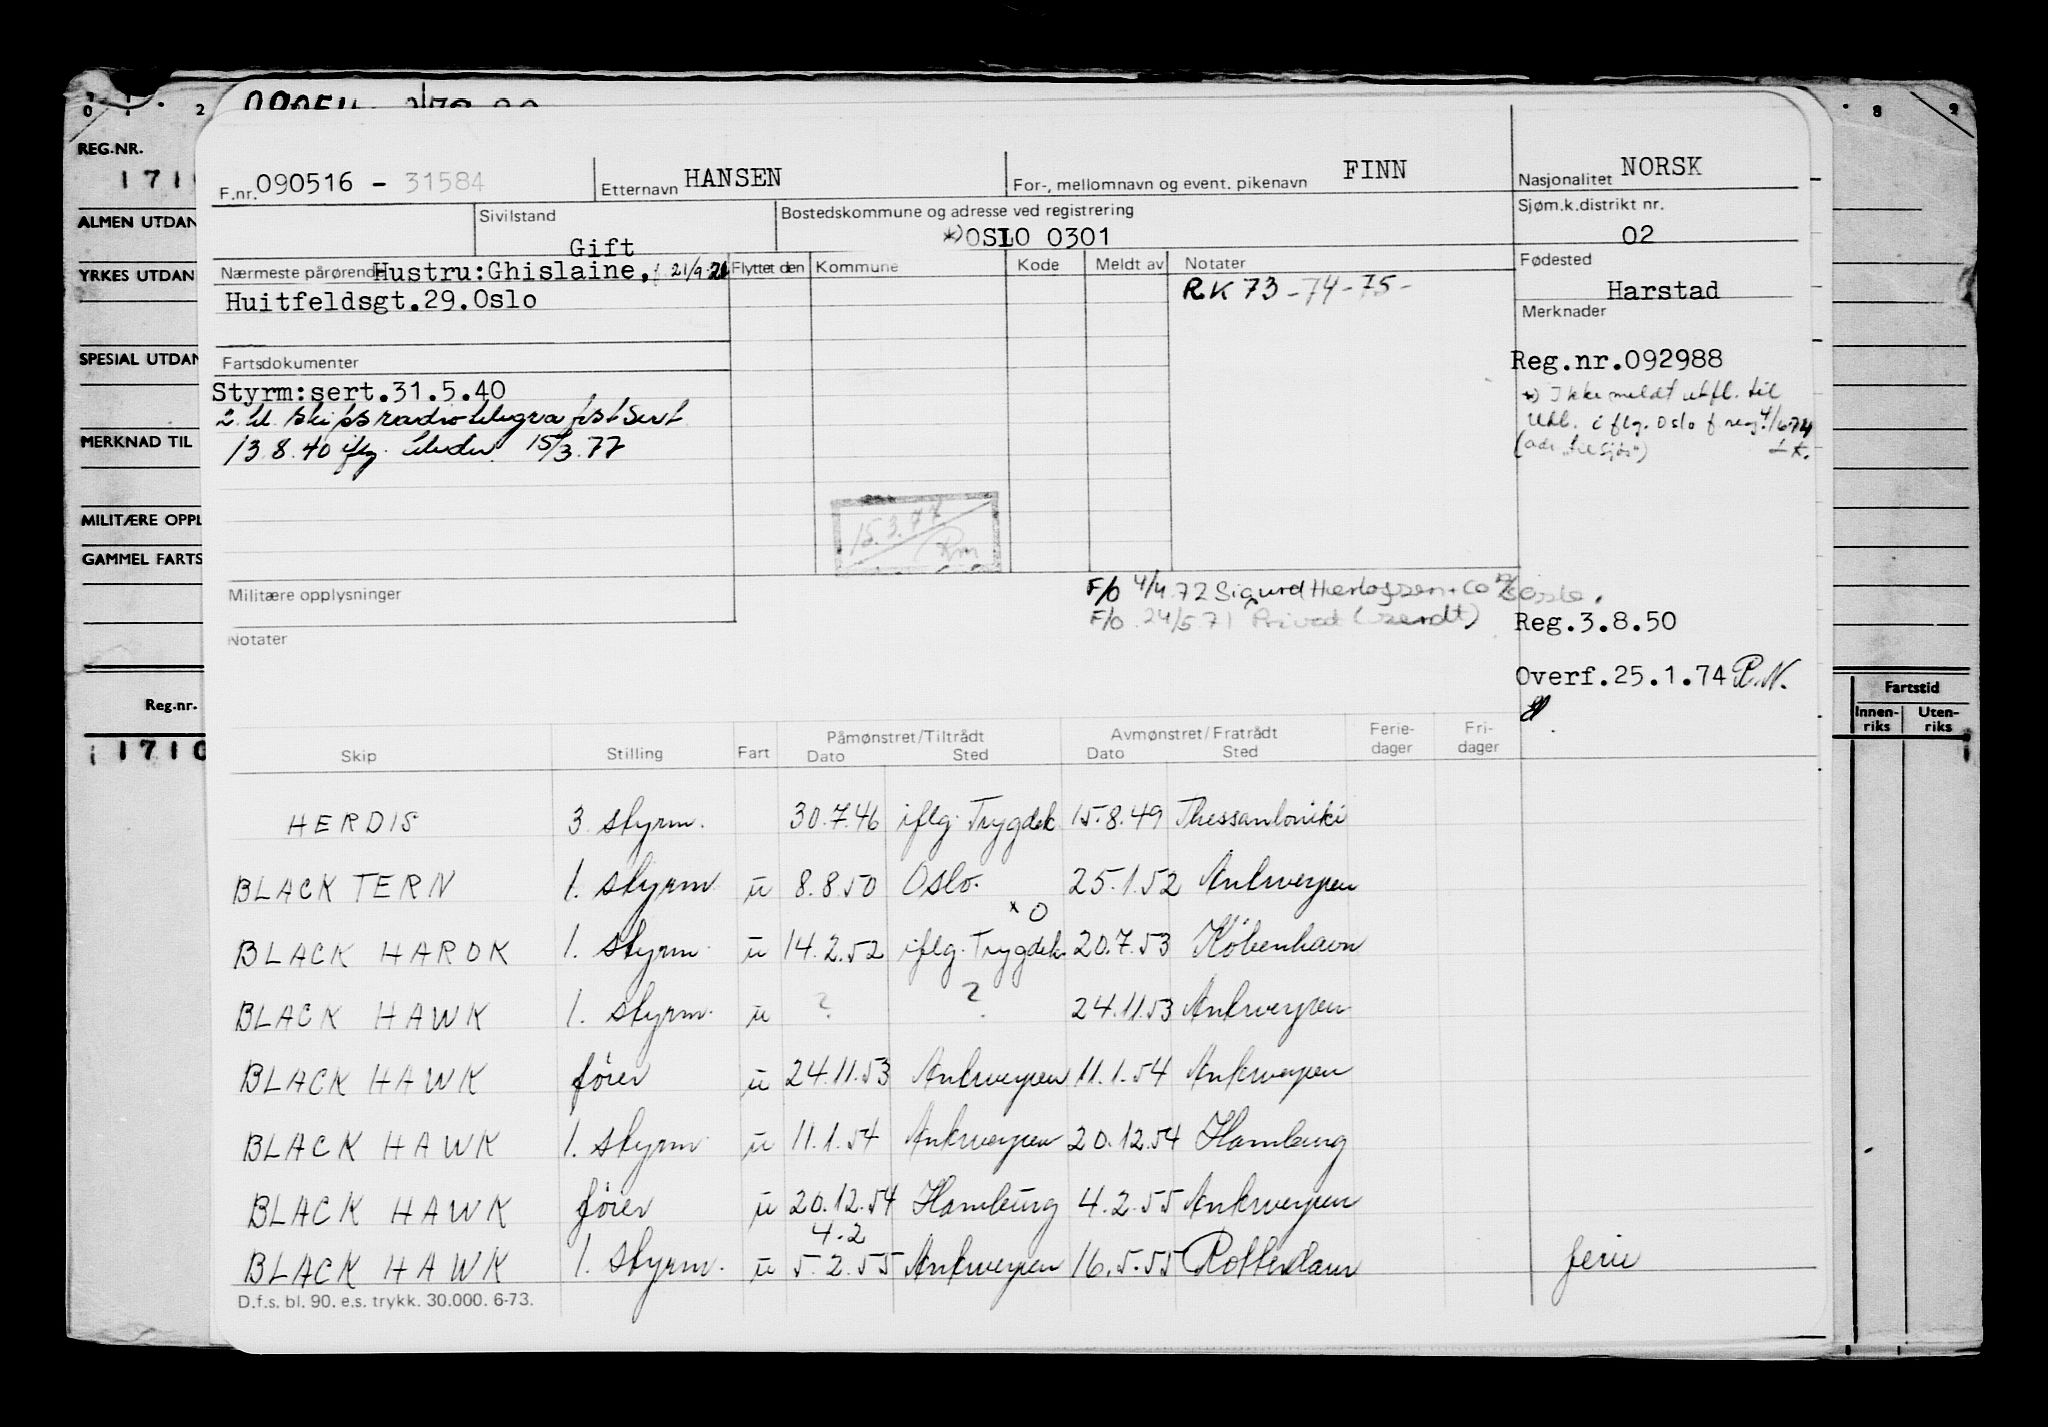 REG.NR.
1710
ALMEN UTDAN
YRKES UTDAN
SPESIAL UTDAN
MERKNAD TIL
MILITÆRE OPPL
GAMMEL FARTS
Reg.nr.
1710
8 9
Fartstid
Innen-riks Uten-riks
F.nr. 090516 - 31584 Etternavn HANSEN For-, mellomnavn og event. pikenavn FINN Nasjonalitet NORSK
Sivilstand Gift Bostedskommune og adresse ved registrering *) OSLO 0301 Sjøm.k.distrikt nr. 02
Nærmeste pårørende Hustru:Ghislaine, Flyttet den Kommune Kode Meldt av Notater Fødested Harstad
Huitfeldsgt.29.Oslo
RK 73-74-75-
Merknader
Reg.nr.092988
*) Ikke meldt utfl. til
Utl. iflg. Oslo f.reg. 4/6 74
Fartsdokumenter
Styrm:sert.31.5.40
2. kl. skipsradiotelegrafist sert
13.8.40 iflg. 15/3.77
15.3.77
Rm
Militære opplysninger
F/o 4/4.72 Sigurd Herlofsen + Co Oslo.
F/o. 24/5.71 Privat
Notater
Reg.3.8.50
Overf.25.1.74 R.N.
Skip Stilling Fart Påmønstret/Tiltrådt Dato Sted Avmønstret/Fratrådt Dato Sted Ferie-dager Fri-dager
HERDIS 3. styrm. 30.7.46 iflg. Trygdek 15.8.49 Thessanloniki
BLACK TERN 1. styrm u 8.8.50 Oslo. 25.1.52 Antwerpen
x O
BLACK HAROK 1. styrm. u 14.2.52 iflg. Trygdek. 20.7.53 København
BLACK HAWK 1. styrm. u ? ? 24.11.53 Antwerpen
BLACK HAWK fører u 24.11.53 Antwerpen 11.1.54 Antwerpen
BLACK HAWK 1. styrm u 11.1.54 Antwerpen 20.12.54 Hamburg
BLACK HAWK fører u 20.12.54 Hamburg 4.2.55 Antwerpen
4.2
BLACK HAWK 1. styrm. u 5.2.55 Antwerpen 16.5.55 Rotterdam ferie
D.f.s. bl. 90. e.s. trykk. 30.000. 6-73.